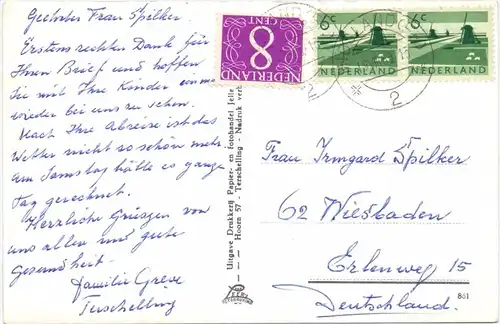 Geehrter Frau Spilker.
Erstens rechten Dank für
Ihren Brief und hoffen
Sie mit Ihre Kinder einmal
wieder bei uns zu sehen.
Nach Ihre Abreise ist das
Wetter nicht so schön mehr.
Am Samstag hätte es ganze
Tag geregnet.
Herzliche Grüszen von
uns allen und gute
Gesundheit.
Familie Greve
Terschelling
8 CENT
NEDERLAND
6c
NEDERLAND
6c
NEDERLAND
2
Uitgave Drukkerij Papier- en fotohandel Jelle
Hoorn 57 - Terschelling - Nadruk verb
Frau Irmgard Spilker
62 Wiesbaden
Erlenweg 15
Deutschland.
861